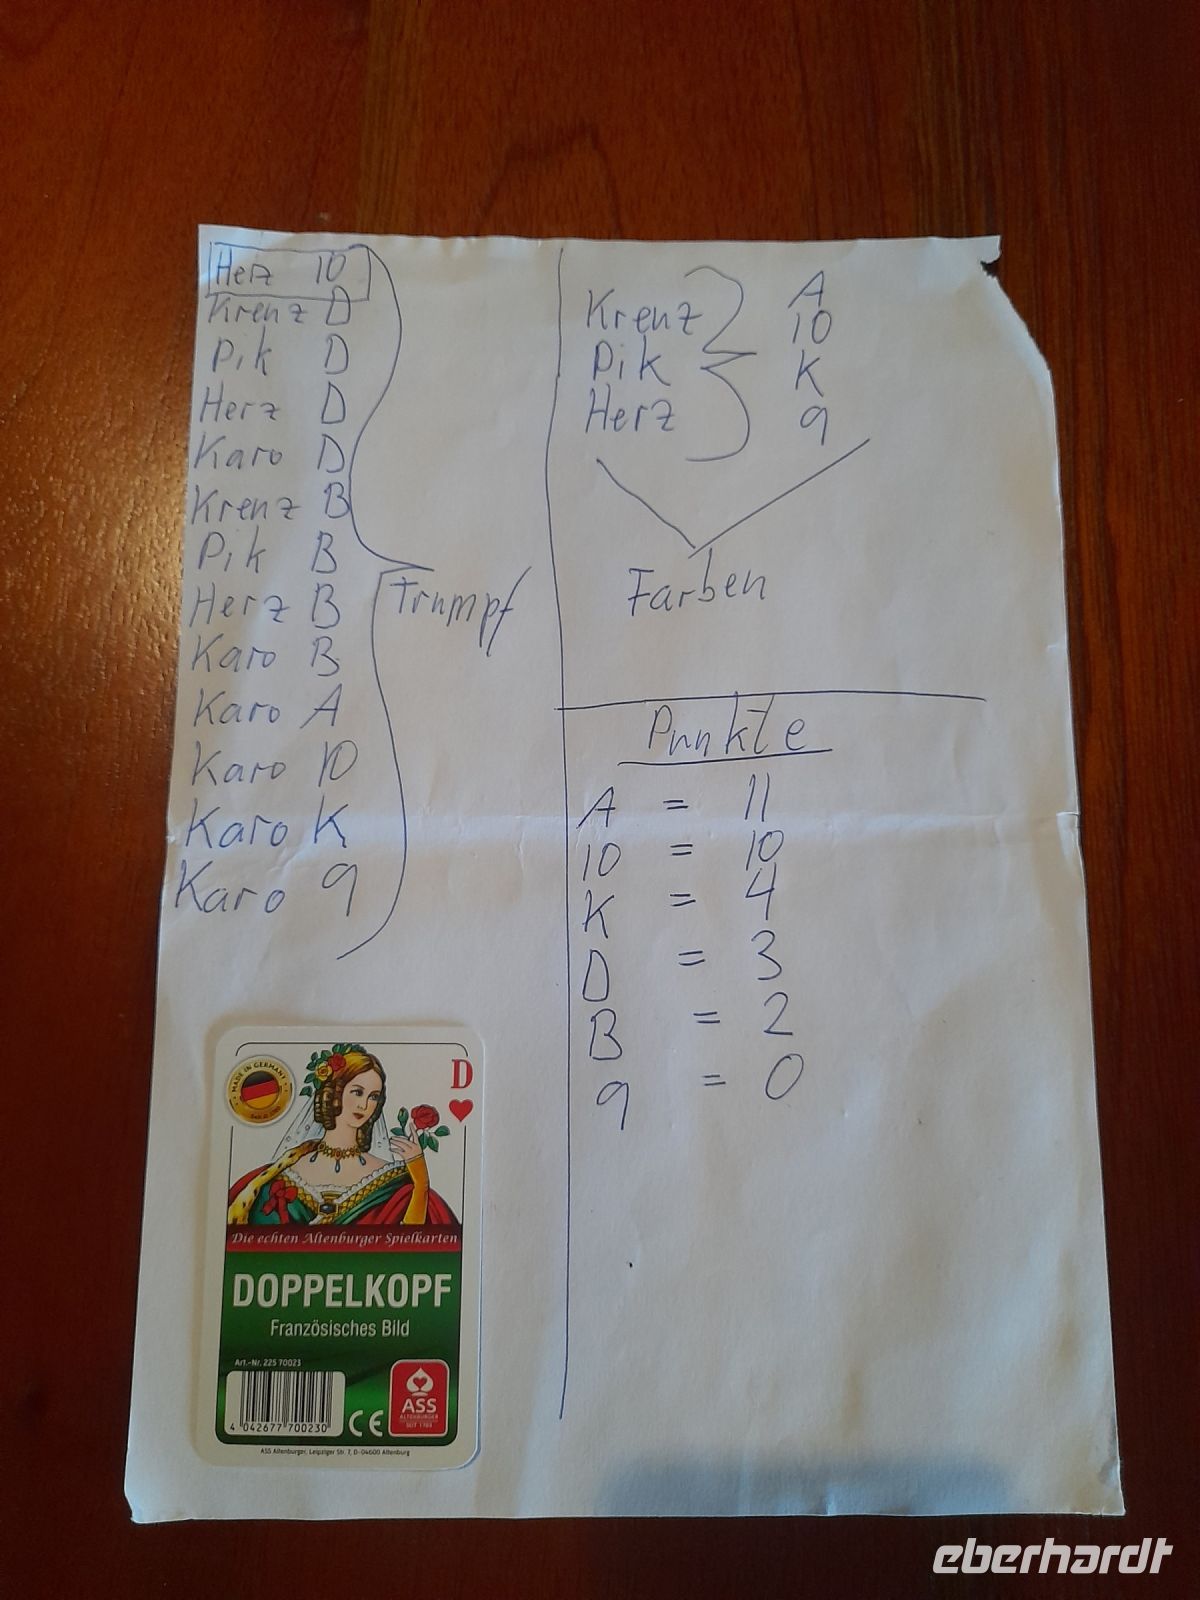 Herz 10
Kreuz D
Pik D
Herz D
Karo D
Kreuz B
Pik B
Herz B
Karo B
Karo A
Karo 10
Karo K
Karo 9
Trumpf
Kreuz
Pik
Herz
A
10
K
9
Farben
Punkte
A = 11
10 = 10
K = 4
D = 3
B = 2
9 = 0
MADE IN GERMANY
D
Die echten Altenburger Spielkarten
DOPPELKOPF
Französisches Bild
Art.-Nr. 225 70023
4 042677 700230
CE
ASS
ALTENBURGER
SEIT 1765
ASS Altenburger, Leipziger Str. 7, D-04600 Altenburg
eberhardt